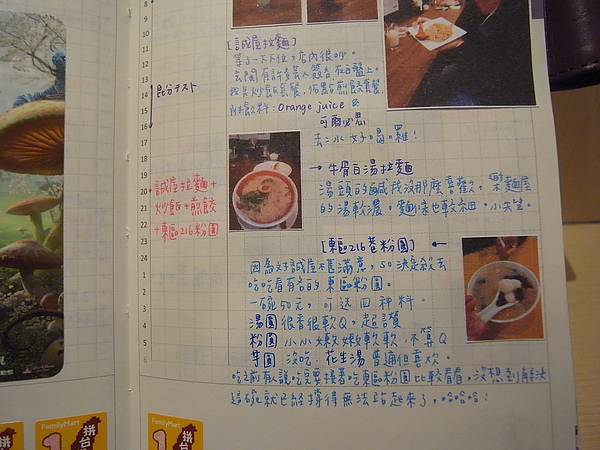 8
9
10
11
12
13
14
15
16
17
18
19
20
21
22
23
24
1
2
3
4
5
6
昆分テスト
誠屋拉麵+
炒飯+煎餃
+東區216粉圓
[誠屋拉麵]
等了一下下位,店內很吵。
玄關有許多藝人簽名在盤上。
我點炒飯套餐,佑點煎餃套餐
附飲料:Orange juice &
可爾必思
去冰好喝囉!
→牛骨白湯拉麵
湯頭的鹹我沒那麼喜歡,樂麵屋
的湯較濃,麵條也較細。小失望。
[東區216巷粉圓] ←
因為對誠屋不舊滿意,so決定飯去
吃吃看有名的東區粉圓。
一碗50元,可送四種料。
湯圓 很香很軟Q,超讚
粉圓 小小嫩嫩軟軟,不算Q
芋圓 沒吃,花生湯 普通但喜歡。
吃之前有人說吃完要接著吃東區粉圓比較看看,沒想到解決
這碗就已經撐得無法站起來了,哈哈哈!
FamilyMart
拼台
FamilyMart
拼台